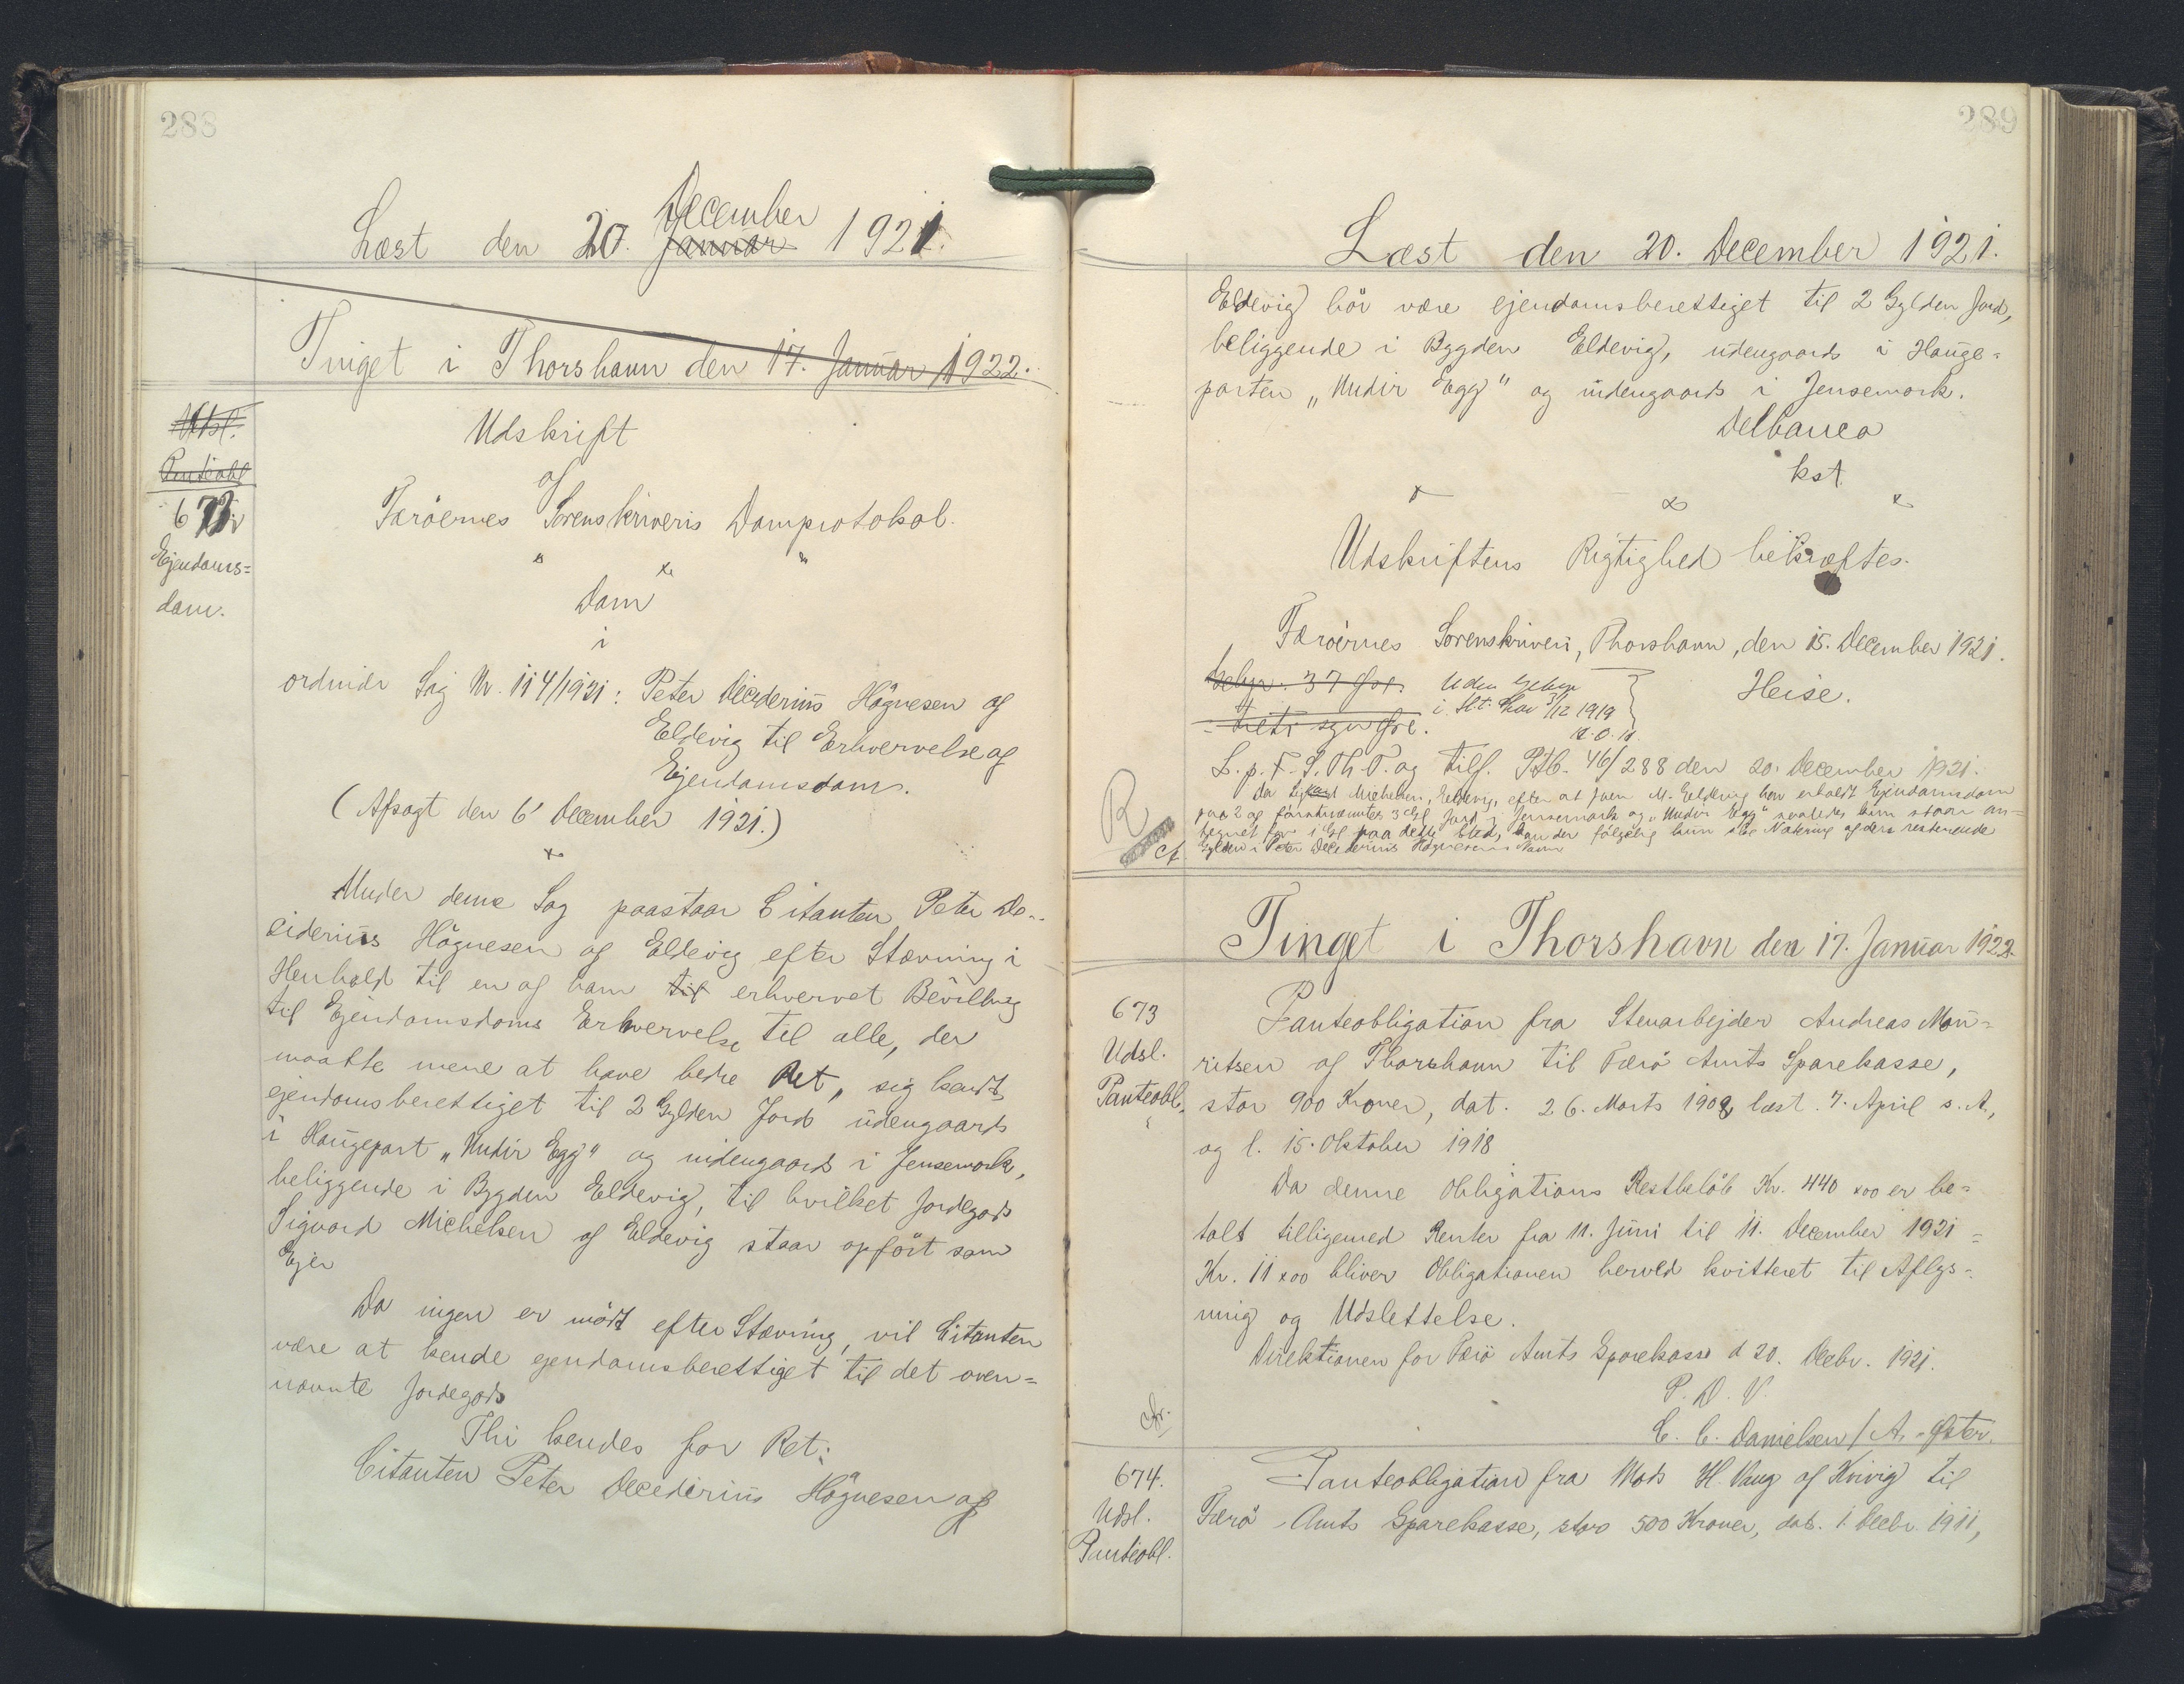 288
Læst den 20. December Januar 1921.
Tinget i Thorshavn den 17. Januar 1922.
Udsl.
Panteobl
672
Ejendoms=
dom.
Udskrift
af
Færöernes Sorenskriveris Domprotokol.
Dom
i
ordinær Sag Nr. 114/1921: Peter Decederius Högnesen af
Eldevig til Erhvervelse af
Ejendomsdom.
(Afsagt den 6' December 1921.)
Under denne Sag paastaar Citanten Peter De-
ciderius Högnesen af Eldevig efter Stævning i
Henhold til en af ham til erhvervet Bevilling
til Ejendomsdoms Erhvervelse til alle, der
maatte mene at have bedre Ret, sig kendt
ejendomsberettiget til 2 Gylden Jord udengaards
i Haugepart "Undir Egg" og indengaards i Jensemork,
beliggende i Bygden Eldevig, til hvilket Jordegods
Sigvard Michelsen af Eldevig staar opfört som
Ejer
Da ingen er mödt efter Stævning, vil Citanten
være at kende ejendomsberettiget til det oven=
nævnte Jordegods
Thi kendes for Ret:
Citanten Peter Decederius Högnesen af
289
Læst den 20. December 1921.
Eldevig bör være ejendomsberettiget til 2 Gylden Jord,
beliggende i Bygden Eldevig, udengaards i Hauge=
parten "Undir Egg" og indengaards i Jensemork.
Delbanco
kst.
Udskriftens Rigtighed bekræftes.
Færöernes Sorenskriveri, Thorshavn, den 15. December 1921.
Gebyr. 37 Øre. Uden Gebyr
i H.t. Lov 3/12 1919
Heise.
L.p. F.S.Th.T. og tilf. Ptb. 46/288 den 20. December 1921.
Da Michelsen, Eldevig, efter at M. Eldevig har erholdt Ejendomsdom
paa 2 af forannævnte 3 Gl Jord i Jensemork og "Undir Egg" saaledes kun staar an=
tegnet for 1 Gl paa dette Sted, kan der fölgelig kun ske Notering af den resterende
Gylden i Peter Decederius Högnesens Navn
R
Tinget i Thorshavn den 17. Januar 1922.
673
Udsl.
Panteobl.
Panteobligation fra Stenarbejder Andreas Mou=
ritsen af Thorshavn til Færö Amts Sparekasse,
stor 900 Kroner, dat. 26. Marts 1908, læst. 7. April s. A.,
og l. 15. Oktober 1918
Da denne Obligations Restbelöb Kr. 440 x00 er be=
talt tilligemed Renter fra 11. Juni til 11. December 1921 =
Kr. 11 x00 bliver Obligationen herved kvitteret til Aflys=
ning og Udslettelse.
Direktionen for Færö Amts Sparekasse d 20. Decbr. 1921.
P. D. V.
C. C. Danielsen / A. Öster.
674.
Udsl.
Panteobl.
Panteobligation fra Mads H. Vang af Kvivig til
Færö Amts Sparekasse, stor 500 Kroner, dat. 1. Decbr. 1911,